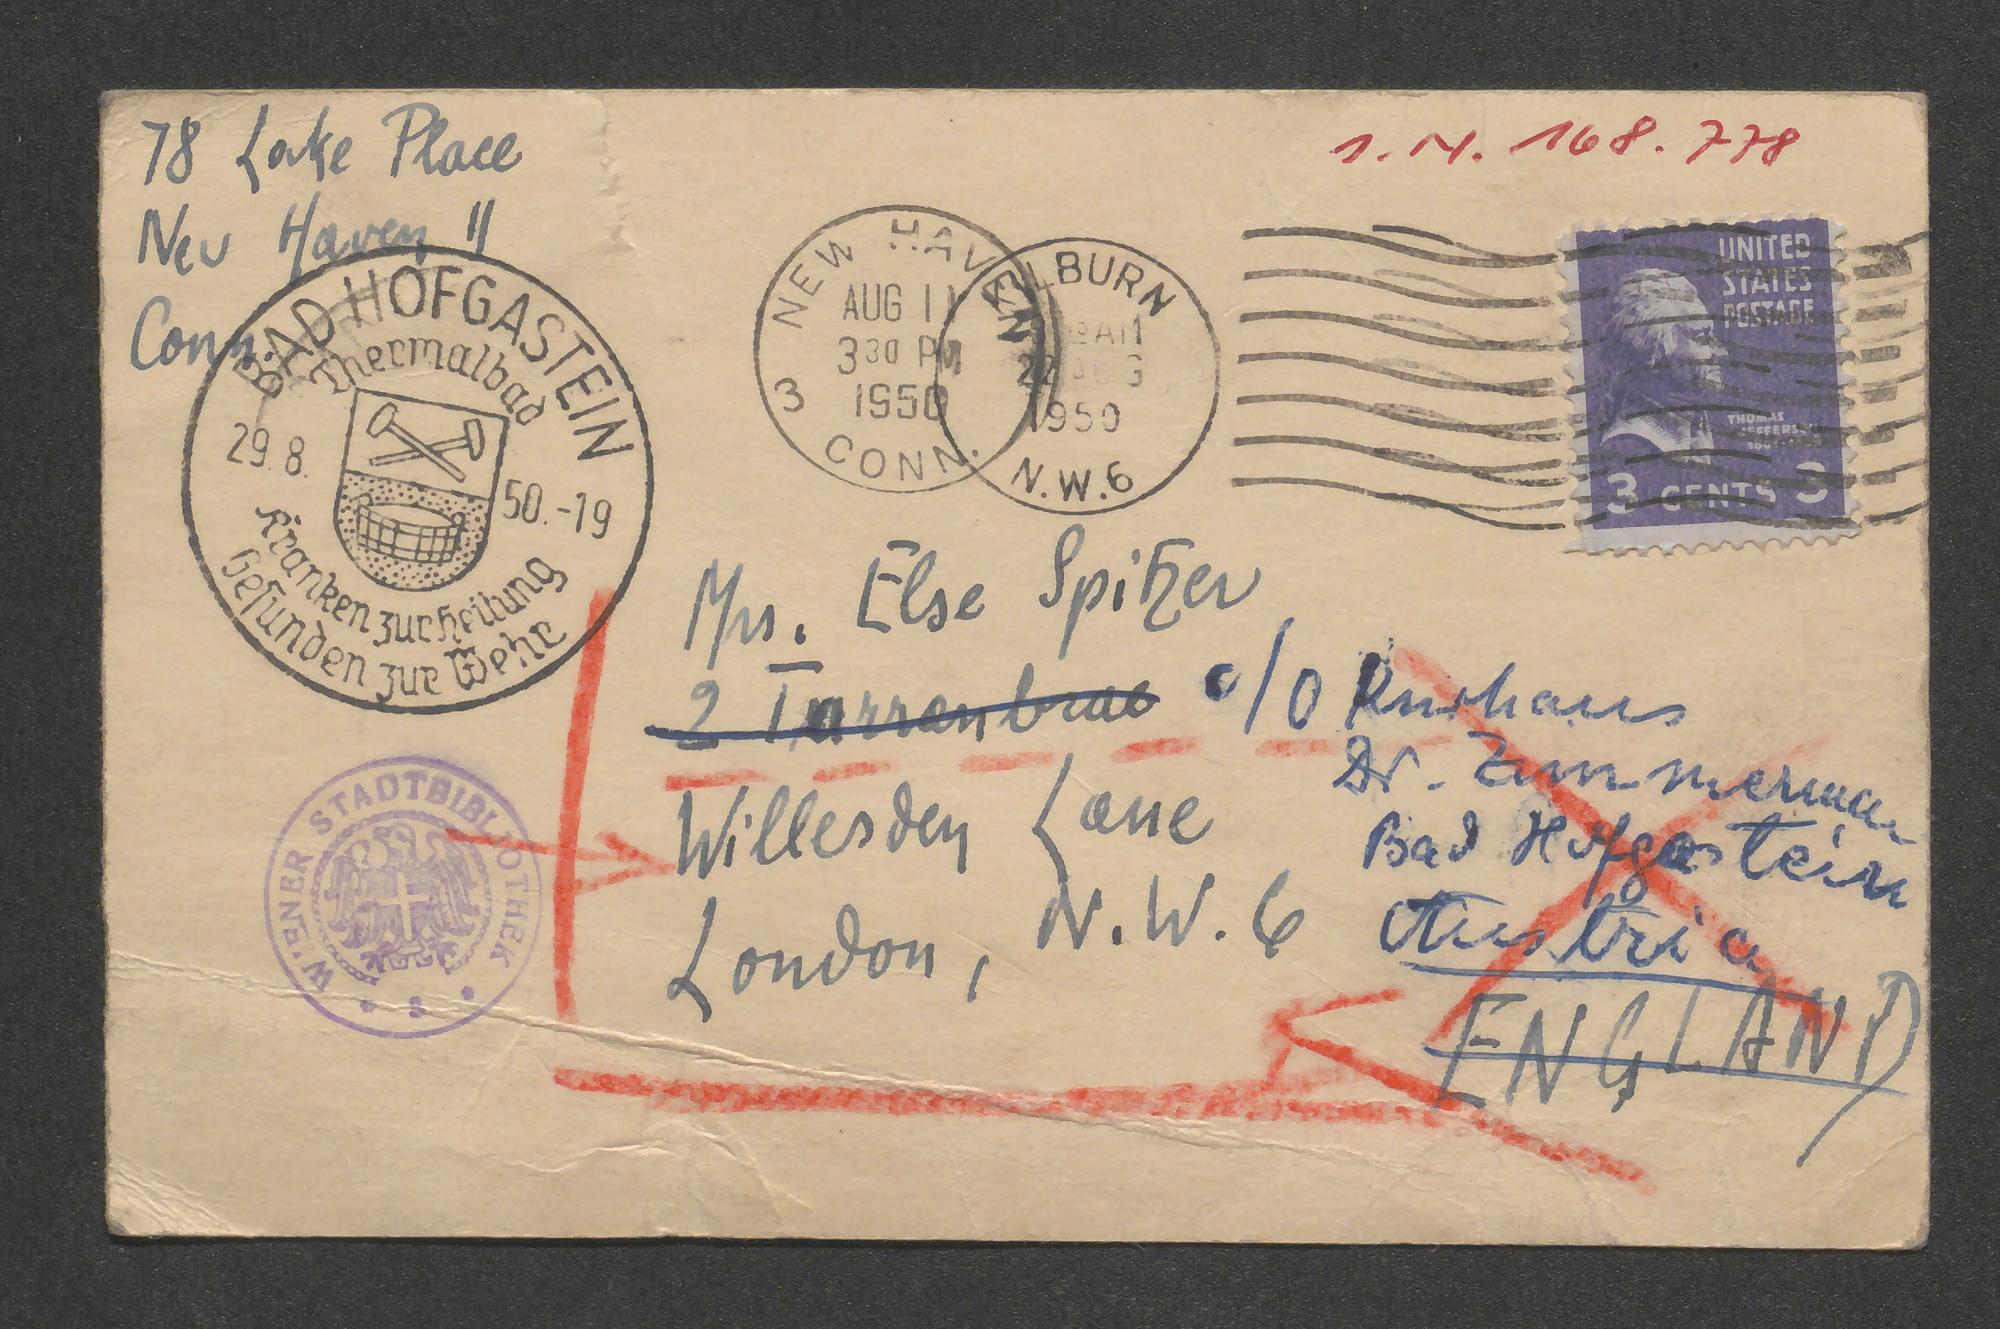 78 Lake Place
New Haven 11
Conn.
I. N. 168.778
BAD HOFGASTEIN
Thermalbad
29.8. 50.-19
Kranken zur Heilung
Gesunden zur Wehr
NEW HAVEN
AUG 11
3 30 PM
1950
3 CONN.
KILBURN
AM
22 AUG
1950
N.W.6
UNITED
STATES
POSTAGE
THOMAS
JEFFERSON
3 CENTS 3
Mrs. Else Spitzer
2 c/o Kurhaus
Dr. Zimmermann
Willesden Lane
Bad Hofgastein
London, N.W. 6
Austria
ENGLAND
WIENER STADTBIBLIOTHEK